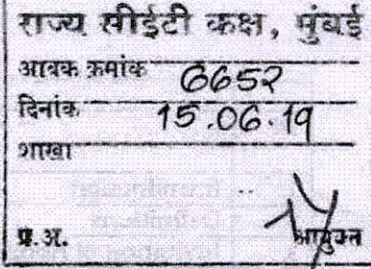 राज्य सीईटी कक्ष, मुंबई
आवक क्रमांक 6652
दिनांक 15.06.19
शाखा
प्र.अ. आयुक्त